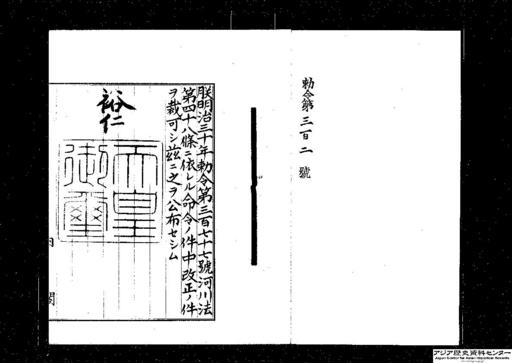 勅令第三百二號
朕明治三十年勅令第三百七十七號河川法
第四十八條ニ依レル命令ノ件中改正ノ件
ヲ裁可シ茲ニ之ヲ公布セシム
裕仁
天皇
御璽
内閣
アジア歴史資料センター
Japan Center for Asian Historical Records